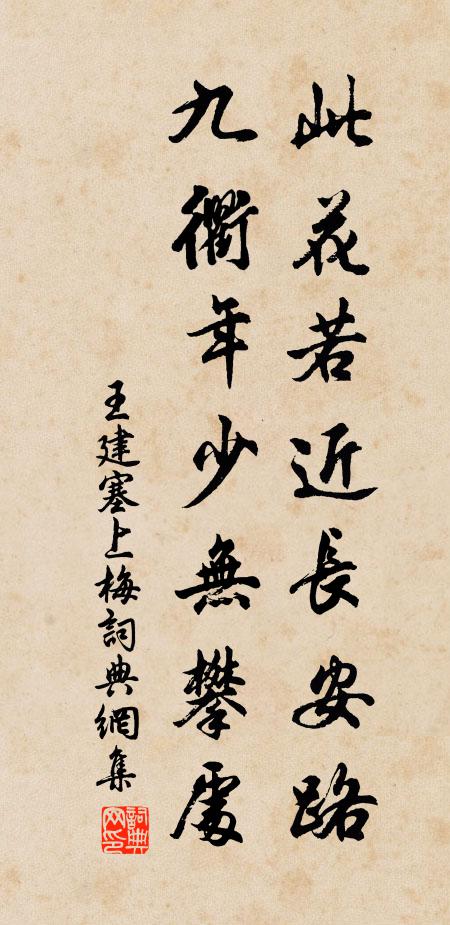 此花若近長安路
九衢年少無攀處
王建塞上梅詞典網集
詞典網印